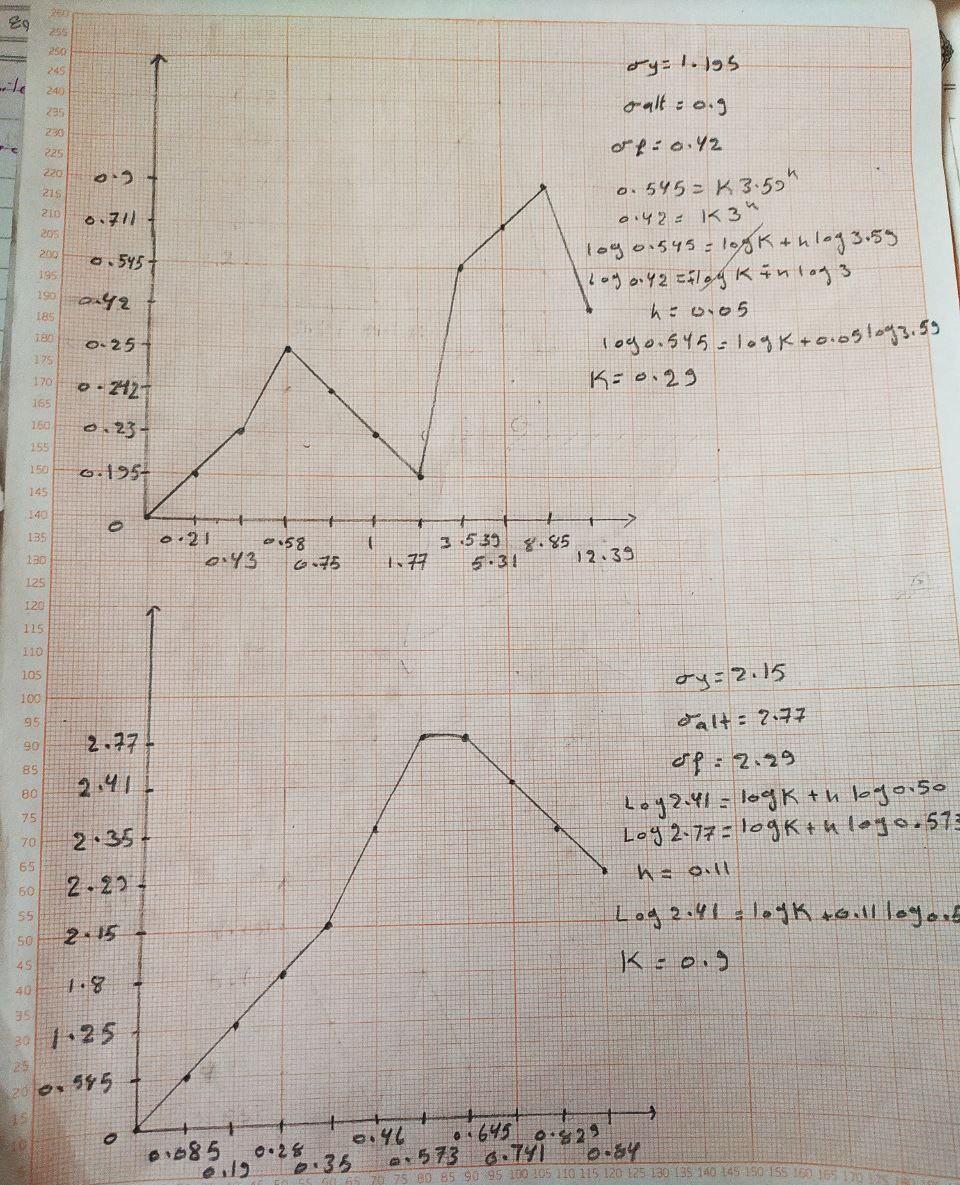 σy = 1.195
σalt = 0.9
σf = 0.42
0.545 = K 3.59^n
0.42 = K 3^n
log 0.545 = log K + n log 3.59
log 0.42 = log K + n log 3
n = 0.05
log 0.545 = log K + 0.05 log 3.59
K = 0.29
0.9
0.711
0.545
0.42
0.25
0.242
0.23
0.195
0
0.21 0.43 0.58 0.75 1 1.77 3.539 5.31 8.85 12.39
σy = 2.15
σalt = 2.77
σf = 2.29
Log 2.41 = log K + n log 0.50
Log 2.77 = log K + n log 0.573
n = 0.11
Log 2.41 = log K + 0.11 log 0.5
K = 0.9
2.77
2.41
2.35
2.29
2.15
1.8
1.25
0.545
0
0.085 0.19 0.28 0.35 0.46 0.573 0.645 0.741 0.829 0.84